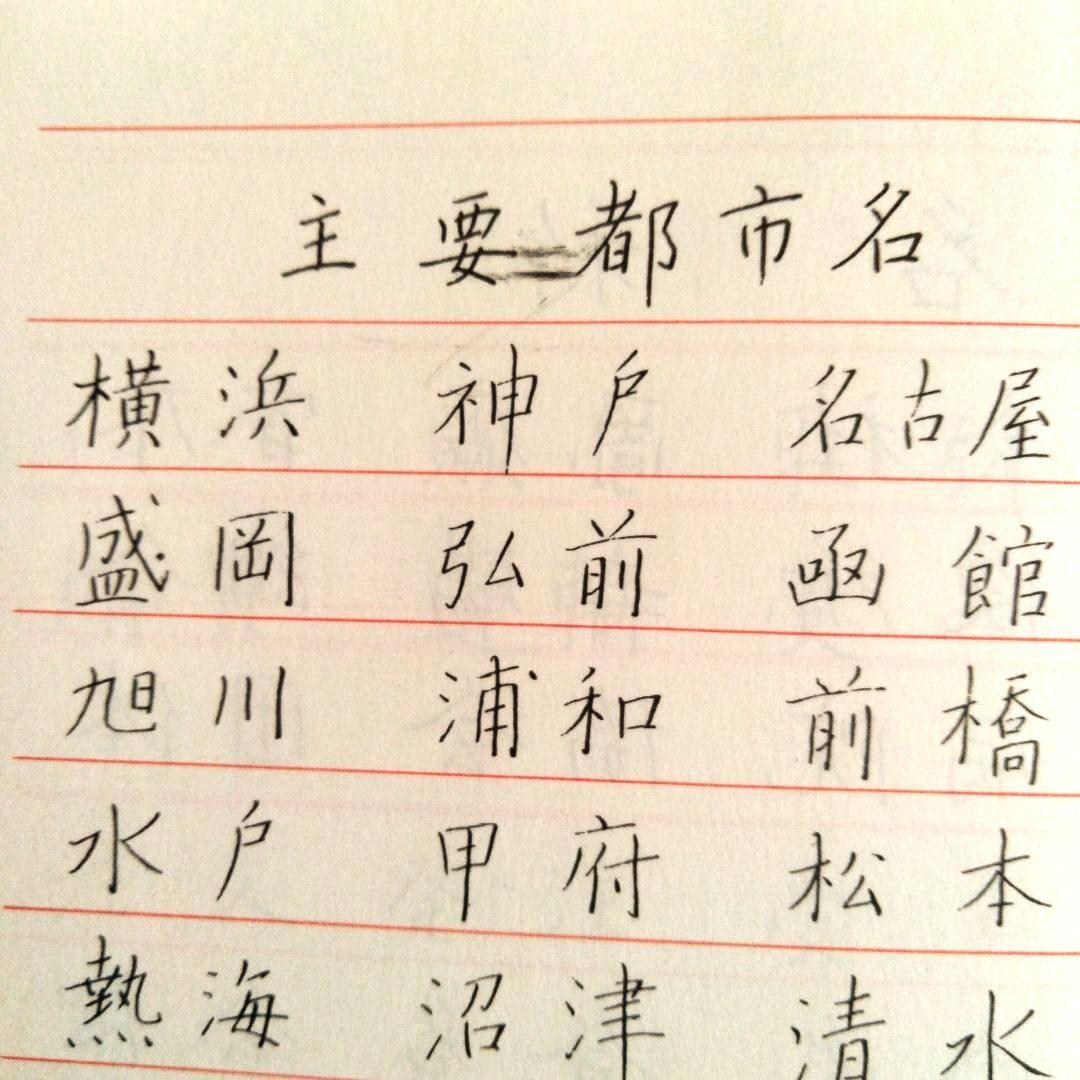 主要都市名
横浜 神戸 名古屋
盛岡 弘前 函館
旭川 浦和 前橋
水戸 甲府 松本
熱海 沼津 清水